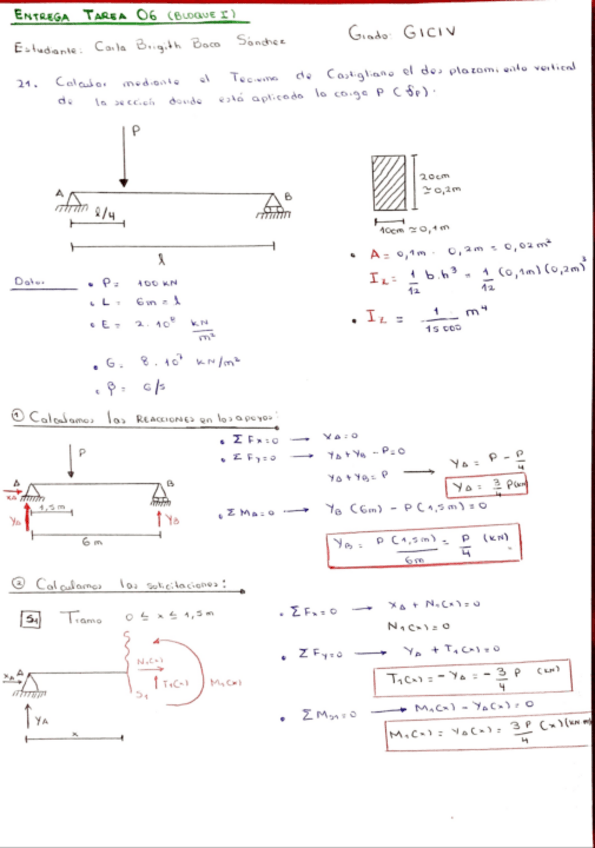 ENTREGA TAREA 06 (BLOQUE I)
Estudiante: Carla Brigith Baca Sánchez
Grado: GICIV
21. Calcular mediante el Teorema de Castigliano el desplazamiento vertical
de la sección donde está aplicada la carga P (δp).
P
A
B
l/4
l
20cm
≃0,2m
10cm ≃0,1m
• A = 0,1m · 0,2m = 0,02m²
Iz = 1/12 b.h³ = 1/12 (0,1m)(0,2m)³
• Iz = 1/15000 m⁴
Datos
• P = 100 kN
• L = 6m = l
• E = 2·10⁸ kN/m²
• G = 8·10⁷ kN/m²
• β = 6/5
① Calculamos las REACCIONES en los apoyos:
P
A
B
XA
YA
1,5m
YB
6m
• ΣFx=0 → XA=0
• ΣFy=0 → YA+YB-P=0
YA+YB=P → YA = P - P/4
YA = 3/4 P(kN)
• ΣMA=0 → YB (6m) - P(1,5m)=0
YB = P(1,5m)/6m = P/4 (kN)
② Calculamos las solicitaciones:
S1 Tramo 0 ≤ x ≤ 1,5m
XA A
N1(x)
T1(x)
M1(x)
S1
YA
x
• ΣFx=0 → XA + N1(x)=0
N1(x)=0
• ΣFy=0 → YA + T1(x)=0
T1(x) = -YA = - 3/4 P (kN)
• ΣMS1=0 → M1(x) - YA(x)=0
M1(x) = YA(x) = 3P/4 (x)(kN m)